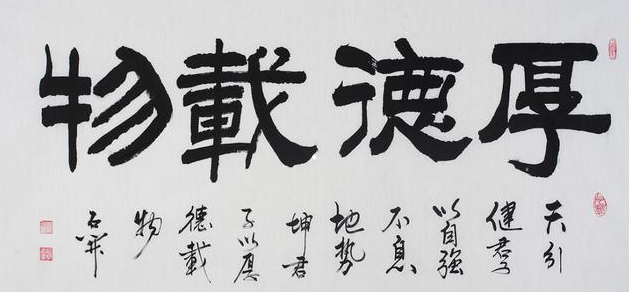 厚德載物
天行
健君子
以自強
不息
地勢
坤君
子以厚
德載
物
石開